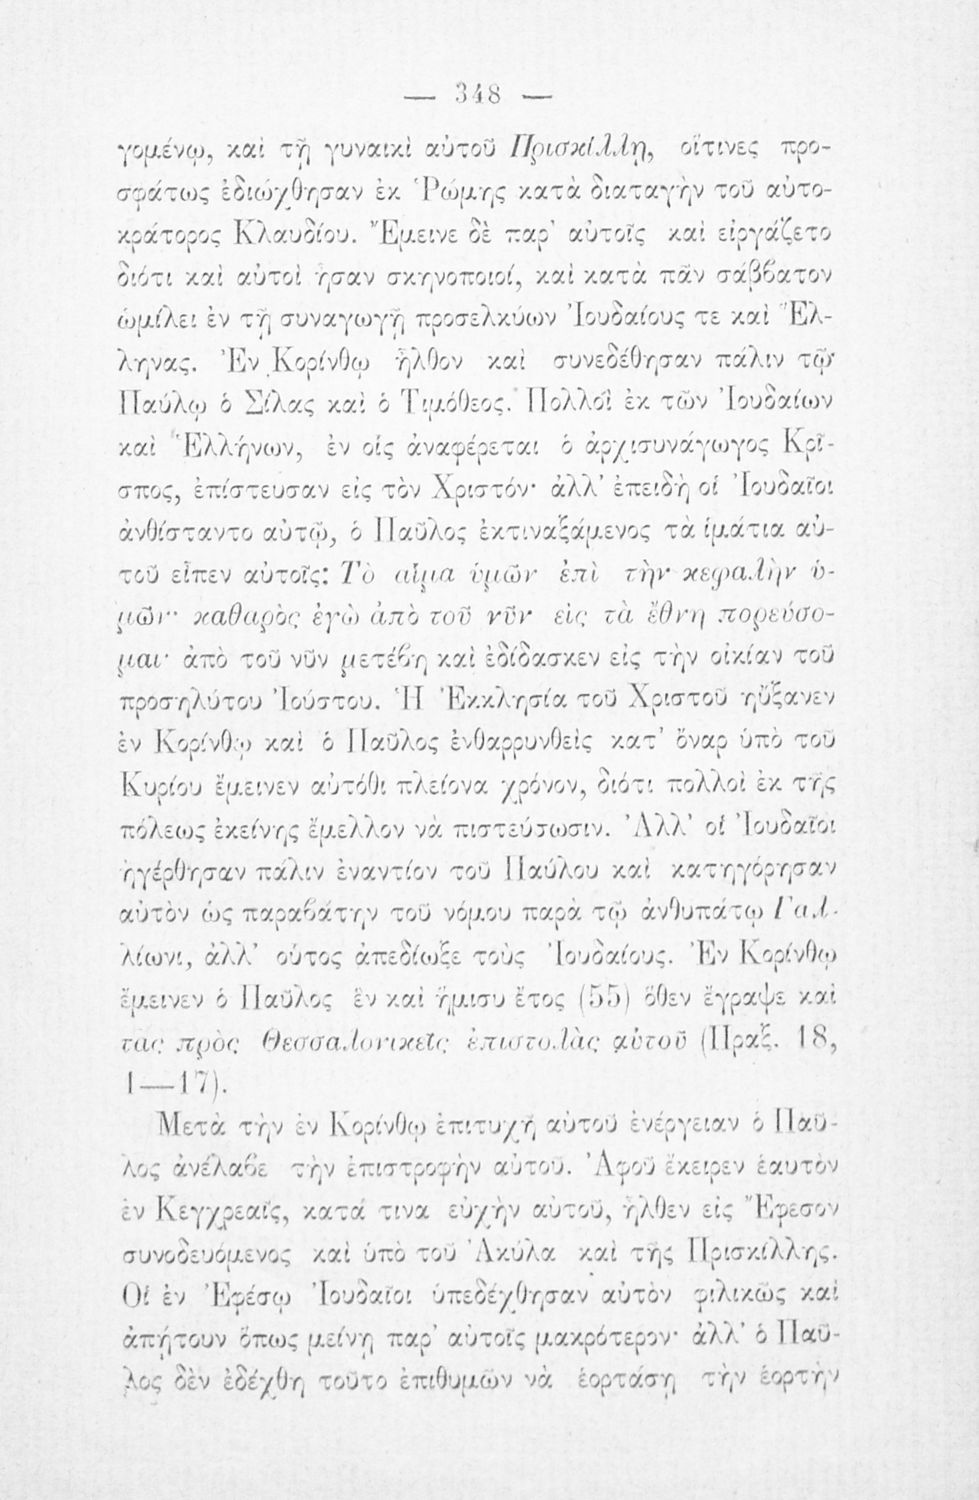 — 348 —
γομένῳ, καὶ τῇ γυναικὶ αὐτοῦ Πρισκίλλῃ, οἵτινες προ-
σφάτως ἐδιώχθησαν ἐκ Ῥώμης κατὰ διαταγὴν τοῦ αὐτο-
κράτορος Κλαυδίου. Ἔμεινε δὲ παρ' αὐτοῖς καὶ εἰργάζετο
διότι καὶ αὐτοὶ ἦσαν σκηνοποιοί, καὶ κατὰ πᾶν σάββατον
ὡμίλει ἐν τῇ συναγωγῇ προσελκύων Ἰουδαίους τε καὶ Ἕλ-
ληνας. Ἐν Κορίνθῳ ἦλθον καὶ συνεδέθησαν πάλιν τῷ
Παύλῳ ὁ Σίλας καὶ ὁ Τιμόθεος. Πολλοὶ ἐκ τῶν Ἰουδαίων
καὶ Ἑλλήνων, ἐν οἷς ἀναφέρεται ὁ ἀρχισυνάγωγος Κρῖ-
σπος, ἐπίστευσαν εἰς τὸν Χριστόν· ἀλλ' ἐπειδὴ οἱ Ἰουδαῖοι
ἀνθίσταντο αὐτῷ, ὁ Παῦλος ἐκτιναξάμενος τὰ ἱμάτια αὐ-
τοῦ εἶπεν αὐτοῖς: Τὸ αἷμα ὑμῶν ἐπὶ τὴν κεφαλὴν ὑ-
μῶν· καθαρὸς ἐγὼ ἀπὸ τοῦ νῦν εἰς τὰ ἔθνη πορεύσο-
μαι· ἀπὸ τοῦ νῦν μετέβη καὶ ἐδίδασκεν εἰς τὴν οἰκίαν τοῦ
προσηλύτου Ἰούστου. Ἡ Ἐκκλησία τοῦ Χριστοῦ ηὔξανεν
ἐν Κορίνθῳ καὶ ὁ Παῦλος ἐνθαρρυνθεὶς κατ' ὄναρ ὑπὸ τοῦ
Κυρίου ἔμεινεν αὐτόθι πλείονα χρόνον, διότι πολλοὶ ἐκ τῆς
πόλεως ἐκείνης ἔμελλον νὰ πιστεύσωσιν. Ἀλλ' οἱ Ἰουδαῖοι
ἠγέρθησαν πάλιν ἐναντίον τοῦ Παύλου καὶ κατηγόρησαν
αὐτὸν ὡς παραβάτην τοῦ νόμου παρὰ τῷ ἀνθυπάτῳ Γαλ-
λίωνι, ἀλλ' οὗτος ἀπεδίωξε τοὺς Ἰουδαίους. Ἐν Κορίνθῳ
ἔμεινεν ὁ Παῦλος ἓν καὶ ἥμισυ ἔτος (55) ὅθεν ἔγραψε καὶ
τὰς πρὸς Θεσσαλονικεῖς ἐπιστολὰς αὐτοῦ (Πραξ. 18,
1—17).
Μετὰ τὴν ἐν Κορίνθῳ ἐπιτυχῆ αὐτοῦ ἐνέργειαν ὁ Παῦ-
λος ἀνέλαβε τὴν ἐπιστροφὴν αὐτοῦ. Ἀφοῦ ἔκειρεν ἑαυτὸν
ἐν Κεγχρεαῖς, κατά τινα εὐχὴν αὐτοῦ, ἦλθεν εἰς Ἔφεσον
συνοδευόμενος καὶ ὑπὸ τοῦ Ἀκύλα καὶ τῆς Πρισκίλλης.
Οἱ ἐν Ἐφέσῳ Ἰουδαῖοι ὑπεδέχθησαν αὐτὸν φιλικῶς καὶ
ἀπῄτουν ὅπως μείνῃ παρ' αὐτοῖς μακρότερον· ἀλλ' ὁ Παῦ-
λος δὲν ἐδέχθη τοῦτο ἐπιθυμῶν νὰ ἑορτάσῃ τὴν ἑορτὴν